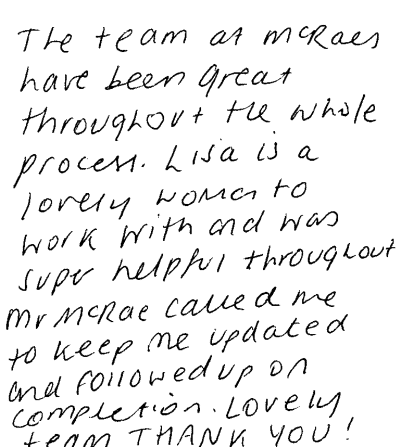 The team at McRaes
have been great
throughout the whole
process. Lisa is a
lovely woman to
work with and was
super helpful throughout
Mr McRae called me
to keep me updated
and followed up on
completion. Lovely
team THANK YOU!